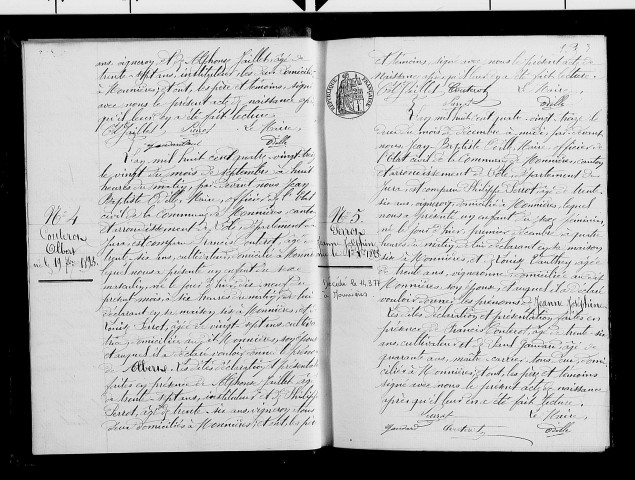 ans, vigneron, et d'Alphonse Jaillet, âgé de
trente sept ans, instituteur, les deux domiciliés
à Monnières, et ont, les père et témoins, signé
avec nous le présent acte de naissance après
qu'il leur en a été fait lecture.
A. Jaillet Le Maire,
Odille
L'an mil huit cent quatre-vingt treize
le vingt du mois de septembre à huit
heures du matin, par devant nous Jean
Baptiste Odille, Maire, officier de l'Etat
civil de la Commune de Monnières, canton
et arrondissement de Dôle, département du
Jura, est comparu Francis Coutrot, âgé de
trente-six ans, cultivateur, domicilié à Monnières
lequel nous a présenté un enfant du sexe
masculin, né le jour d'hier, dix-neuf du
présent mois, à six heures du matin, de lui
déclarant en sa maison, sise à Monnières, et de
Louise Perrot, âgée de vingt sept ans, cultiva-
trice, domiciliée au dit Monnières, son épouse
et auquel il a déclaré vouloir donner le prénom
de Albert. Les dites déclaration et présentation
faites en présence de Alphonse Jaillet, âgé
de trente-sept ans, instituteur et de Philippe
Perrot, âgé de trente-six ans, vigneron, tous
deux domiciliés à Monnières; et ont, les père
N° 4
Albert
né le 19 7bre 1893.
REPUBLIQUE FRANÇAISE
et témoins, signé avec nous le présent acte de
naissance après qu'il leur en a été fait lecture.
A. Jaillet Coutrot Le Maire,
Odille
L'an mil huit cent quatre-vingt treize
le deux du mois de décembre à midi, par devant
nous, Jean Baptiste Odille, Maire, officier de
l'Etat civil de la Commune de Monnières, canton
et arrondissement de Dôle, département du
Jura, est comparu Philippe Perrot, âgé de trente-
six ans, vigneron, domicilié à Monnières, lequel
nous a présenté un enfant du sexe féminin,
né le jour d'hier, premier décembre à quatre
heures du matin, de lui déclarant en sa maison
sise à Monnières, et de Louise
de trente ans, vigneronne, domiciliée au dit
Monnières, son épouse, et auquel il a déclaré
vouloir donner les prénoms de Jeanne Joséphine.
Les dites déclaration et présentation faites en
présence de Francis Coutrot, âgé de trente-six
ans, cultivateur et de âgé de
quarante ans, maître carrier, tous deux domi-
ciliés à Monnières; et ont, les père et témoins
signé avec nous le présent acte de naissance
après qu'il leur en a été fait lecture.
Perrot Le Maire,
Coutrot Odille
N° 5
Perrot
Jeanne Joséphine
Décédée le
à Monnières